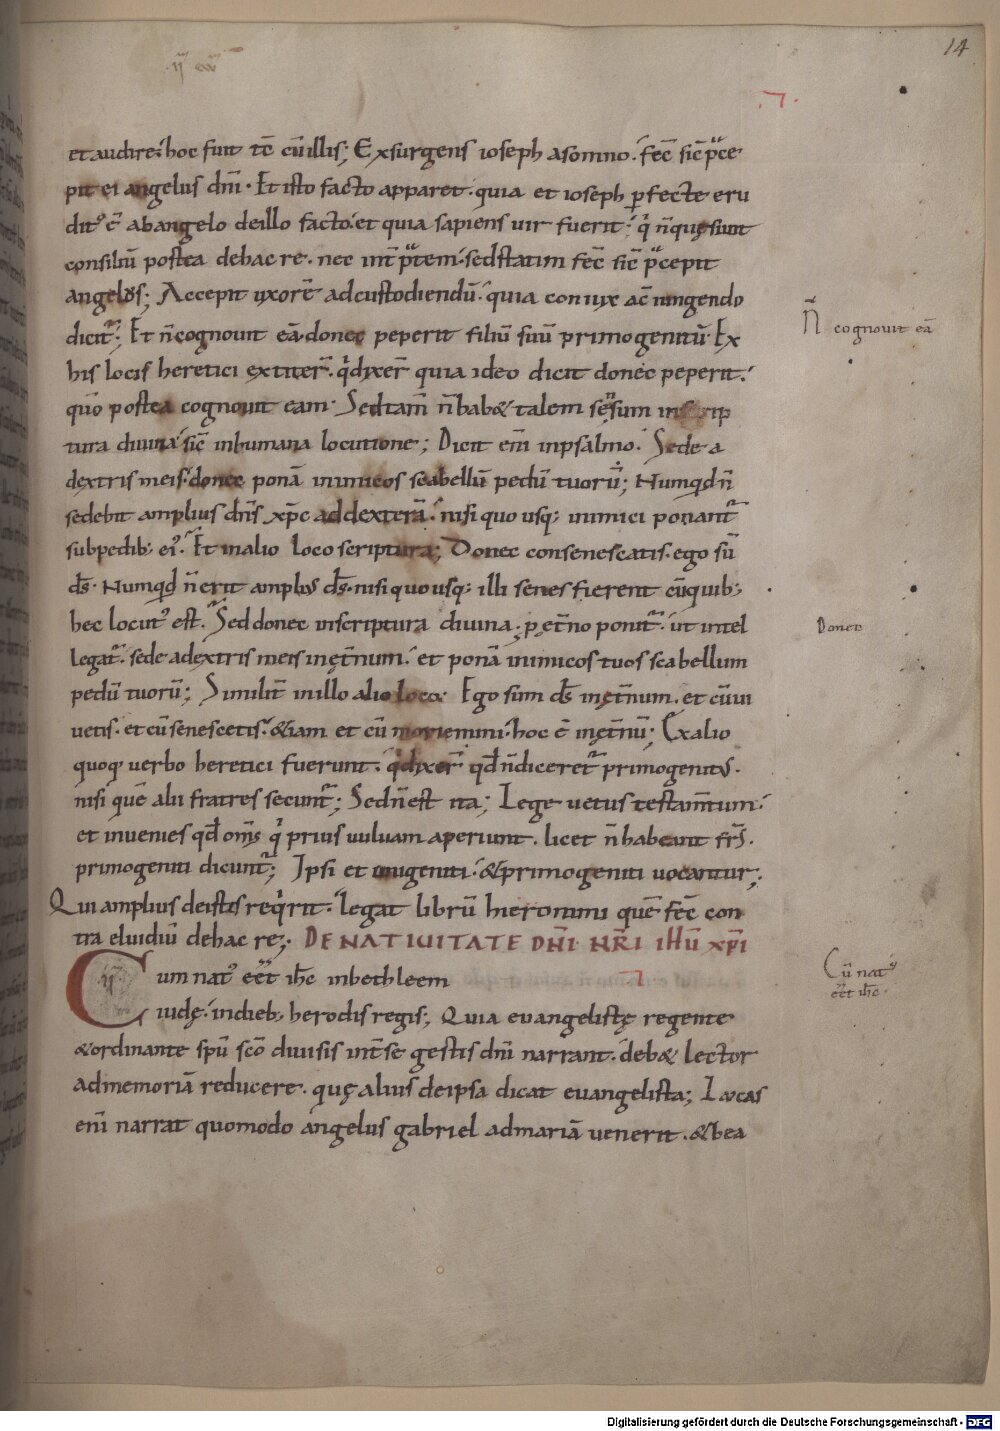 14
et audire. hoc fuit tc̄ cū illis; Exsurgens ioseph asomno. fec̄ sic̄ p̄ce
pit ei angelus dn̄i. Et isto facto apparet. quia et ioseph ꝑfecte eru
dit᾿ ē abangelo deillo facto. et quia sapiens uir fuerit. q̄ n̄ quęsiuit
consiliū postea dehac re. nec int̄ p̄tem. sed statim fec̄ sic̄ p̄cepit
angelus; Accepit uxorē adcustodiendū. quia coniux ac̄ iungendo
dicit᷑; Et n̄ cognouit eā donec peperit filiū suū primogenitū. Ex
his locis heretici extiter̄. q̄ dixer̄ quia ideo dicit donec peperit.
quō postea cognouit eam. Sed tam̄ n̄ hab& talem sęnsum in scrip
tura diuina. sic̄ inhumana locutione; Dicit eni̅ inpsalmo. Sede a
dextris meis. donec ponā inimicos scabellū pedū tuorū; Numq̄d n̄
sedebit amplius dn̄s xp̄c addexterā. nisi quo usq; inimici ponant᷑
subpedib; ei᾿. Et inalio loco scriptura; Donec consenescatis. ego sū
ds̄. Numq̄d n̄ erit amplius ds̄. nisi quousq; illi senes fierent cū quib;
hec locut᾿ est. Sed donec inscriptura diuina. p ęt̄no ponit᷑. ut intel
legat᷑. sede adextris meis inęt̄num. et ponā inimicos tuos scabellum
pedū tuorū; Similit̄ inillo alio loco. Ego sum ds̄ inęt̄num. et cū iu
uetis. et cū senescetis. &iam et cū moriemini. hoc ē inęt̄nū; Exalio
quoq; uerbo heretici fuerunt. q̄ dixer̄ qd̄ n̄ diceret᷑ primogenitus.
nisi quē alii fratres secunt᷑; Sed n̄ est ita; Lege uetus testam̄tum.
et inuenies qd̄ om̄s q̄ prius uuluam aperiunt. licet n̄ habeant fr̄s.
primogeniti dicunt᷑; Ipsi et unigeniti. &primogeniti uocantur;
Qui amplius deistis req̄rit. legat librū hieronimi quē fec̄ con
tra eluidiū dehac re; DE NATIUITATE DN̄I NR̄I IHŪ XPĪ
Cum nat᾿ eēt ih̄c inbethleem
iudę. indieb; herodis regis; Quia euangelistę regente
&ordinante spū scō diuisis int̄ se gestis dn̄i narrant. deb& lector
admemoriā reducere. quę alius deipsa dicat euangelista; Lucas
eni̅ narrat quomodo angelus gabriel admariā uenerit. &bea
N̄ cognouit eā
Donec
Cū nat᾿
eēt ih̄c
Digitalisierung gefördert durch die Deutsche Forschungsgemeinschaft - DFG